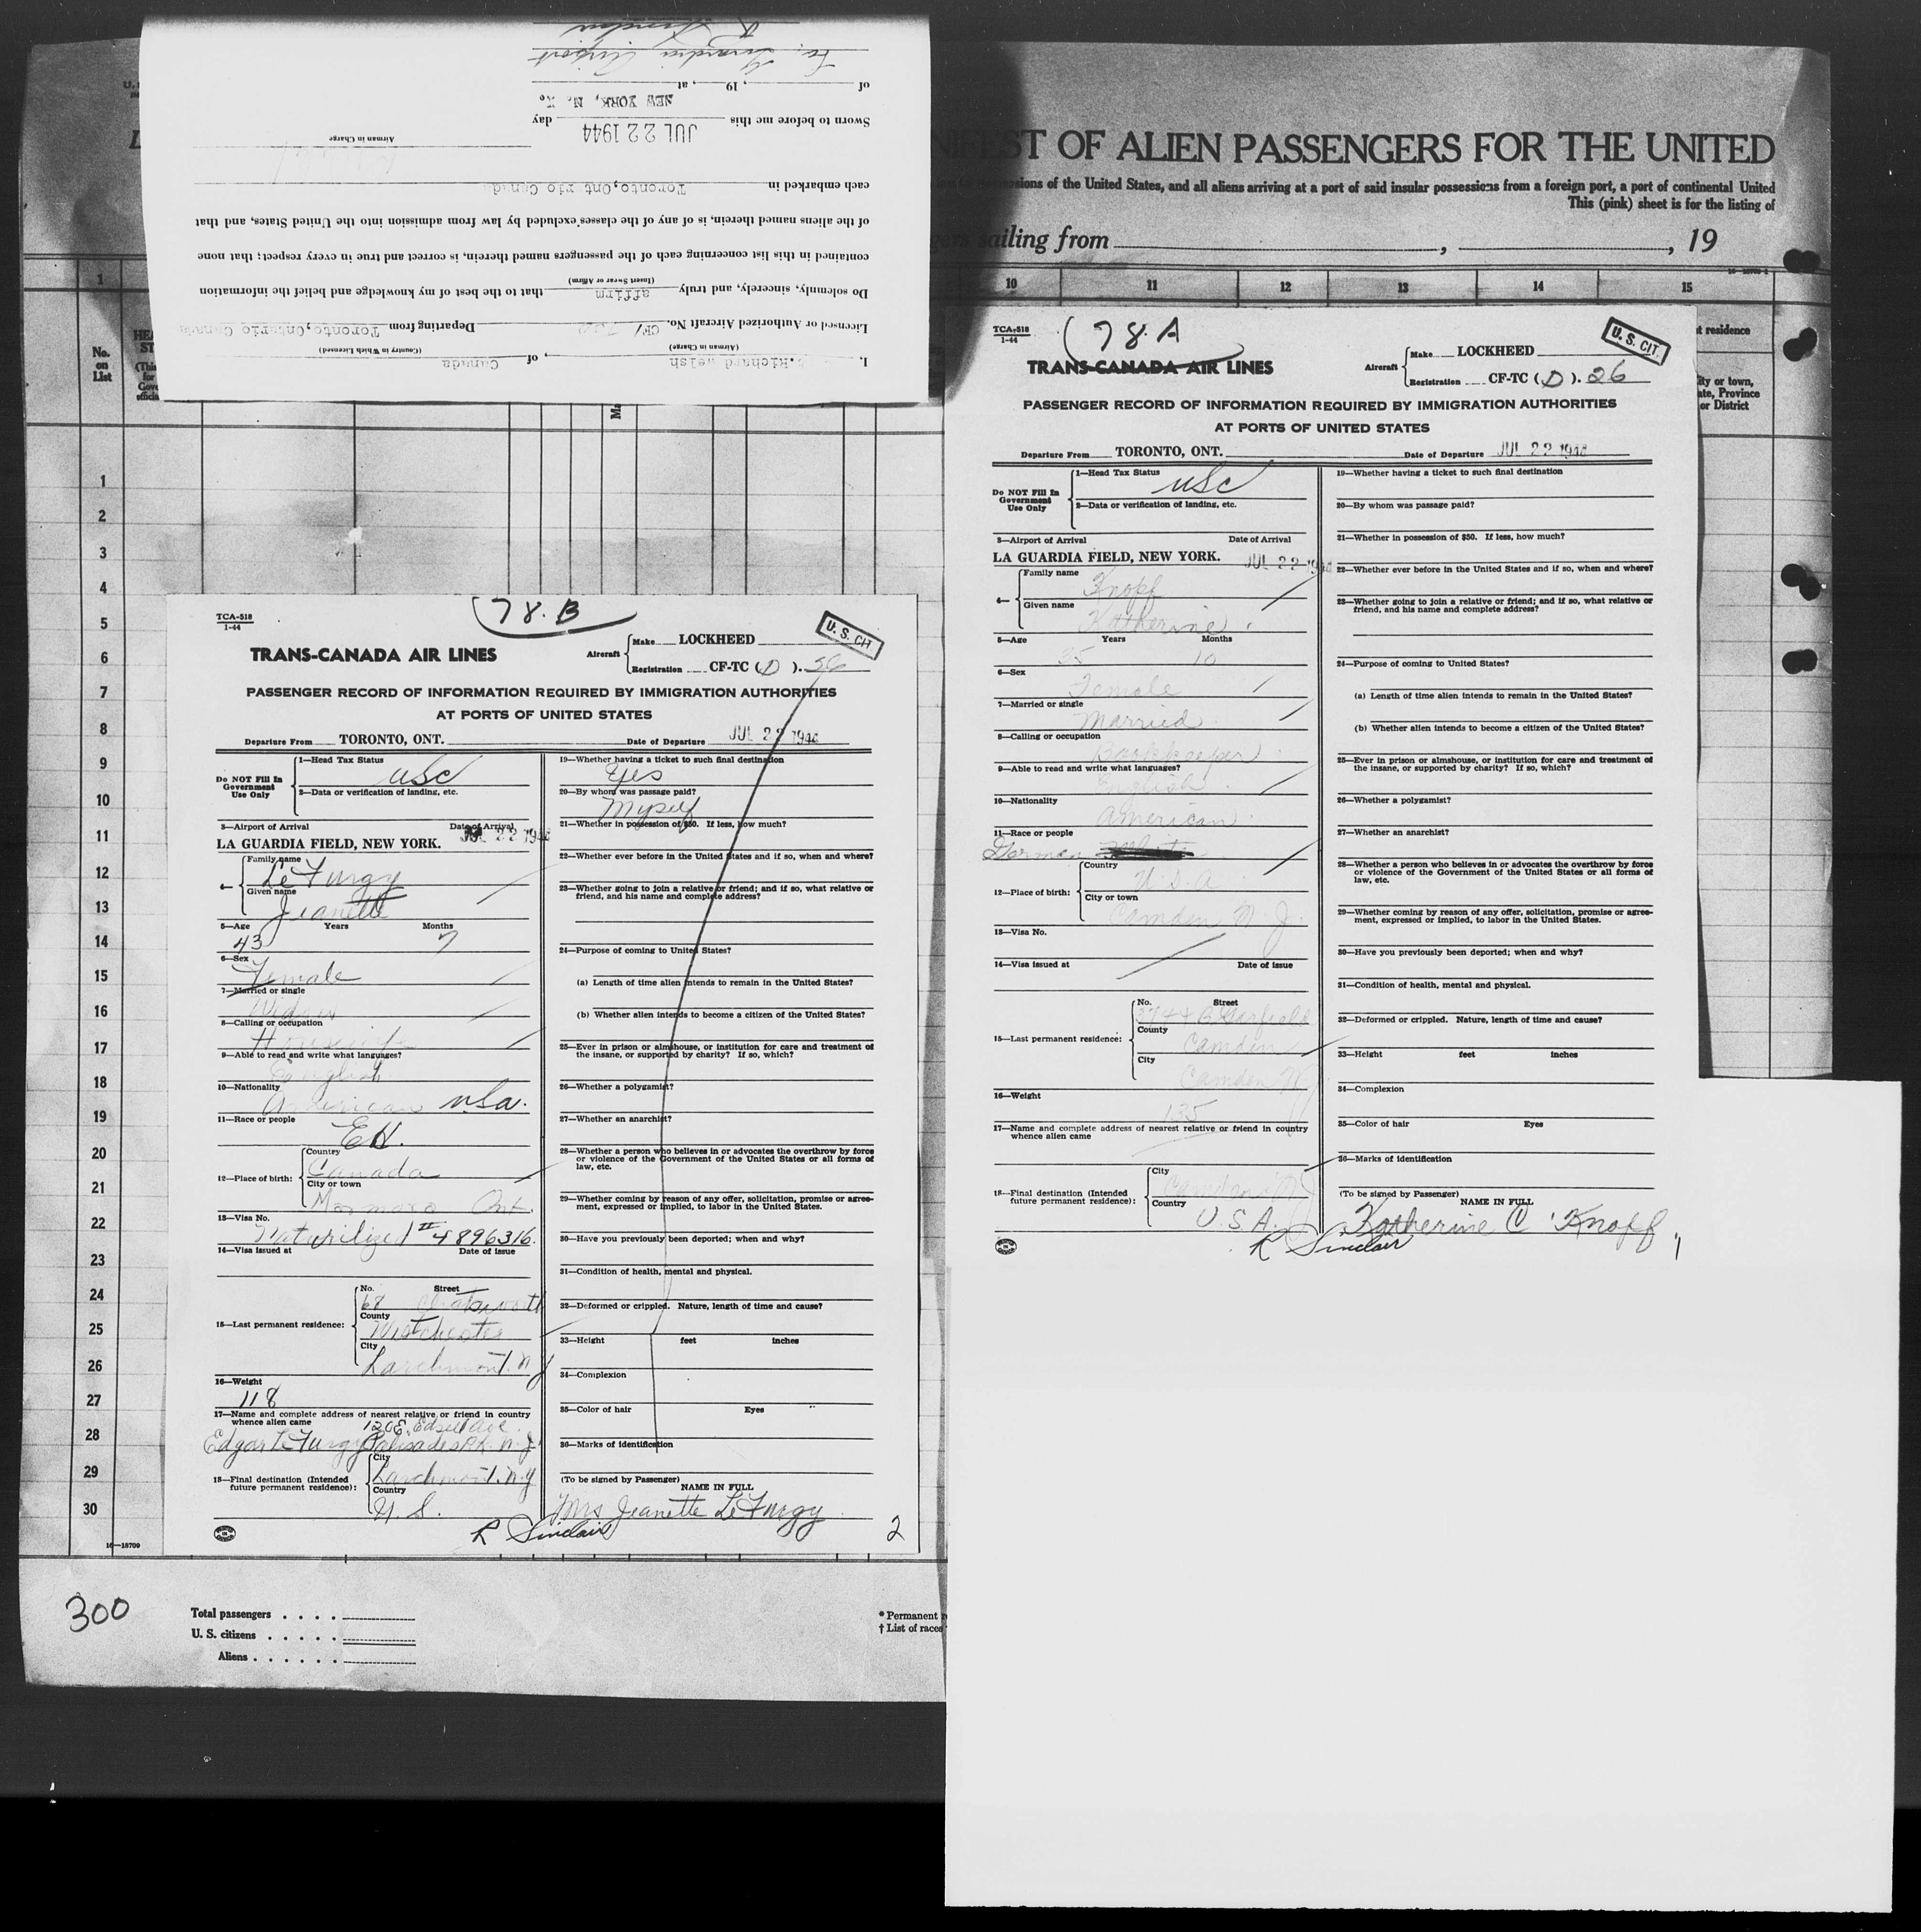 MANIFEST OF ALIEN PASSENGERS FOR THE UNITED
sions of the United States, and all aliens arriving at a port of said insular possessions from a foreign port, a port of continental United
This (pink) sheet is for the listing of
sailing from , , 19
1 10 11 12 13 14 15
No. on List
t residence
ity or town,
ate, Province
or District
I, Richard Welsh, of Canada
(Airman in Charge) (Country in Which Licensed)
Licensed or Authorized Aircraft No. CF/ Departing from Toronto, Ontario Canada
Do solemnly, sincerely, and truly affirm that to the best of my knowledge and belief the information
(Insert Swear or Affirm)
contained in this list concerning each of the passengers named therein, is correct and true in every respect; that none
of the aliens named therein, is of any of the classes excluded by law from admission into the United States, and that
each embarked in Toronto, Ont rio Canada
Airman in Charge
Sworn to before me this JUL 22 1944 day
NEW YORK, N. Y.
of , 19 , at
1
2
3
4
5
6
7
8
9
10
11
12
13
14
15
16
17
18
19
20
21
22
23
24
25
26
27
28
29
30
16—18709
TCA-518
1-44
78.B
U. S. CIT
TRANS-CANADA AIR LINES
Aircraft Make LOCKHEED
Registration CF-TC (D).
PASSENGER RECORD OF INFORMATION REQUIRED BY IMMIGRATION AUTHORITIES
AT PORTS OF UNITED STATES
Departure From TORONTO, ONT. Date of Departure JUL 22 1944
Do NOT Fill In Government Use Only
1—Head Tax Status USC
2—Data or verification of landing, etc.
3—Airport of Arrival Date of Arrival
LA GUARDIA FIELD, NEW YORK. JUL 22 1944
4— Family name LeFurgy
Given name Jeanette
5—Age 43 Years Months 7
6—Sex Female
7—Married or single Widow
8—Calling or occupation Housewife
9—Able to read and write what languages? English
10—Nationality American USa.
11—Race or people
12—Place of birth: Country Canada
City or town Marmora Ont.
13—Visa No. # 4896316.
14—Visa issued at Date of issue
15—Last permanent residence: No. Street 68 Chatsworth
County Westchester
City Larchmont. N Y
16—Weight 118
17—Name and complete address of nearest relative or friend in country
whence alien came 120 E. Edsell Ave.
Edgar LeFurgy Palisades Pk. N.J.
18—Final destination (Intended future permanent residence): City Larchmont. N Y
Country U. S.
19—Whether having a ticket to such final destination
Yes
20—By whom was passage paid?
Myself
21—Whether in possession of $50. If less, how much?
22—Whether ever before in the United States and if so, when and where?
23—Whether going to join a relative or friend; and if so, what relative or
friend, and his name and complete address?
24—Purpose of coming to United States?
(a) Length of time alien intends to remain in the United States?
(b) Whether alien intends to become a citizen of the United States?
25—Ever in prison or almshouse, or institution for care and treatment of
the insane, or supported by charity? If so, which?
26—Whether a polygamist?
27—Whether an anarchist?
28—Whether a person who believes in or advocates the overthrow by force
or violence of the Government of the United States or all forms of
law, etc.
29—Whether coming by reason of any offer, solicitation, promise or agree-
ment, expressed or implied, to labor in the United States.
30—Have you previously been deported; when and why?
31—Condition of health, mental and physical.
32—Deformed or crippled. Nature, length of time and cause?
33—Height feet inches
34—Complexion
35—Color of hair Eyes
36—Marks of identification
(To be signed by Passenger)
NAME IN FULL
Mrs Jeanette LeFurgy
R Sinclair
2
TCA-518
1-44
78.A
U. S. CIT.
TRANS-CANADA AIR LINES
Aircraft Make LOCKHEED
Registration CF-TC (D). 26
PASSENGER RECORD OF INFORMATION REQUIRED BY IMMIGRATION AUTHORITIES
AT PORTS OF UNITED STATES
Departure From TORONTO, ONT. Date of Departure JUL 22 1944
Do NOT Fill In Government Use Only
1—Head Tax Status USC
2—Data or verification of landing, etc.
3—Airport of Arrival Date of Arrival
LA GUARDIA FIELD, NEW YORK. JUL 22 1944
4— Family name Knopf
Given name Katherine
5—Age 35 Years Months 10
6—Sex Female
7—Married or single Married
8—Calling or occupation Bookkeeper
9—Able to read and write what languages? English
10—Nationality American
11—Race or people German
12—Place of birth: Country U.S.A.
City or town Camden N. J.
13—Visa No.
14—Visa issued at Date of issue
15—Last permanent residence: No. Street Garfield
County Camden
City Camden N J
16—Weight 135
17—Name and complete address of nearest relative or friend in country
whence alien came
18—Final destination (Intended future permanent residence): City Camden N J
Country U.S.A.
19—Whether having a ticket to such final destination
20—By whom was passage paid?
21—Whether in possession of $50. If less, how much?
22—Whether ever before in the United States and if so, when and where?
23—Whether going to join a relative or friend; and if so, what relative or
friend, and his name and complete address?
24—Purpose of coming to United States?
(a) Length of time alien intends to remain in the United States?
(b) Whether alien intends to become a citizen of the United States?
25—Ever in prison or almshouse, or institution for care and treatment of
the insane, or supported by charity? If so, which?
26—Whether a polygamist?
27—Whether an anarchist?
28—Whether a person who believes in or advocates the overthrow by force
or violence of the Government of the United States or all forms of
law, etc.
29—Whether coming by reason of any offer, solicitation, promise or agree-
ment, expressed or implied, to labor in the United States.
30—Have you previously been deported; when and why?
31—Condition of health, mental and physical.
32—Deformed or crippled. Nature, length of time and cause?
33—Height feet inches
34—Complexion
35—Color of hair Eyes
36—Marks of identification
(To be signed by Passenger)
NAME IN FULL
Katherine C Knopf
R Sinclair
1
300
Total passengers
U. S. citizens
Aliens
* Permanent
† List of races